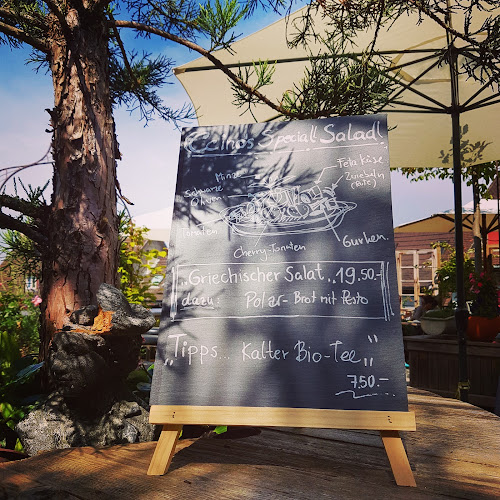 Celina's Speciall Salad!
Minze
Schwarze
Oliven
Tomaten
Feta Käse
Zwiebeln
(Bite)
Cherry-Tomaten
Gurken
"Griechischer Salat" 19.50.-
dazu: Polar-Brot mit Pesto
"Tipps... Kalter Bio-Tee"
7.50.-